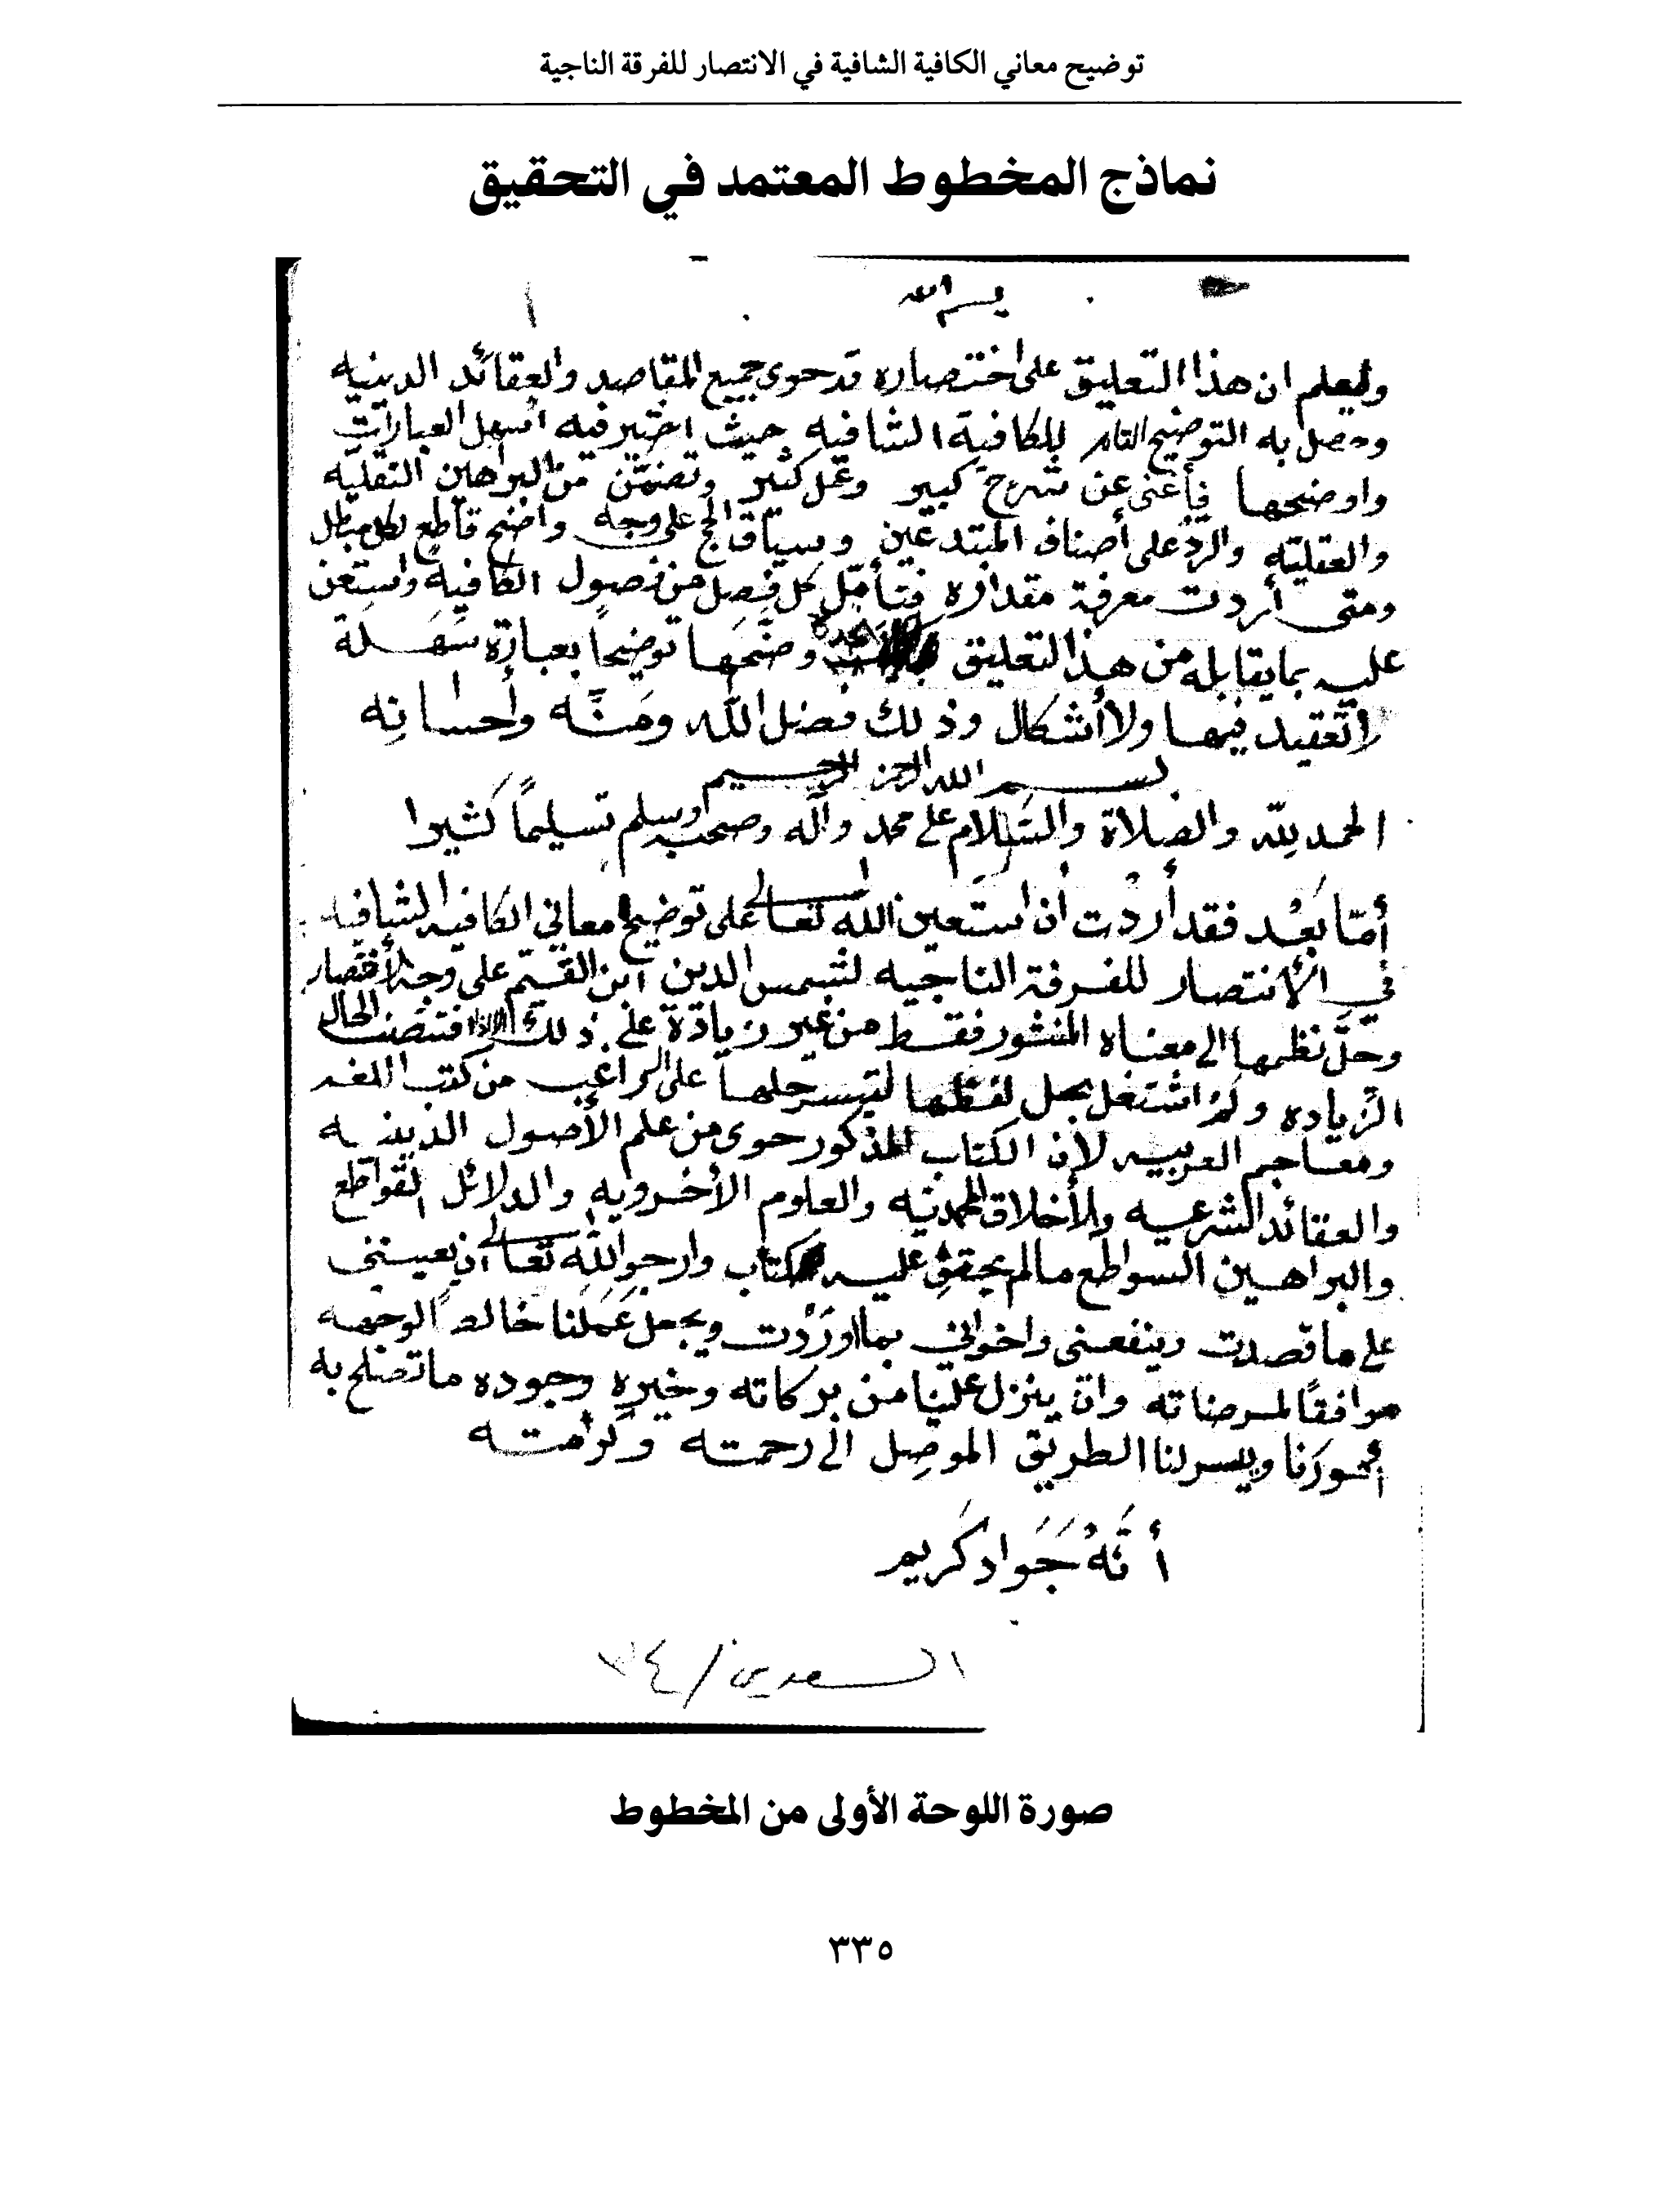 توضيح معاني الكافية الشافية في الانتصار للفرقة الناجية
نماذج المخطوط المعتمد في التحقيق
بسم الله
١
وليعلم ان هذا التعليق على اختصاره قد حوى جميع المقاصد والعقائد الدينيه
وحصل به التوضيح التام للكافية الشافيه حيث اختير فيه أسهل العبارات
واوضحها فأغنى عن شرح كبير وعمل كثير وتضمن من البراهين النقليه
والعقليه والرد على أصناف المبتدعين وسياق الحجج على وجه واضح قاطع لكل مبطل
ومتى أردت معرفة مقداره فتأمل كل فصل من فصول الكافيه واستعن
عليه بما يقابله من هذا التعليق تجده وضحها توضيحاً بعبارة سهلة
لا تعقيد فيها ولا أشكال وذلك فضل الله ومنه وأحسانه
بسم الله الرحمن الرحيم
الحمد لله والصلاة والسلام على محمد وآله وصحبه وسلم تسليماً كثيرا
أما بعد فقد أردت ان استعين الله تعالى على توضيح معاني الكافيه الشافيه
في الأنتصار للفرقة الناجيه لشمس الدين ابن القيم على وجه الأختصار
وحل نظمها الى معناه المنثور فقط من غير زيادة على ذلك الا اذا اقتضت الحال
الزياده ولم اشتغل بحل لفظها لتيسر حلها على الراغب من كتب اللغه
ومعاجم العربيه لأن الكتاب المذكور حوى من علم الأصول الدينيه
والعقائد الشرعيه والأخلاق المحمديه والعلوم الأخرويه والدلائل القواطع
والبراهين السواطع ما لم يحتو عليه كتاب وارجو الله تعالى ان يعينني
على ما قصدت وينفعني واخواني بما اوردت ويجعل عملنا خالصاً لوجهه
موافقاً لمرضاته وان ينزل علينا من بركاته وخيره وجوده ما تصلح به
أمورنا وييسر لنا الطريق الموصل الى رحمته وكرامته
أنه جواد كريم
السعدي /
صورة اللوحة الأولى من المخطوط
٣٣٥